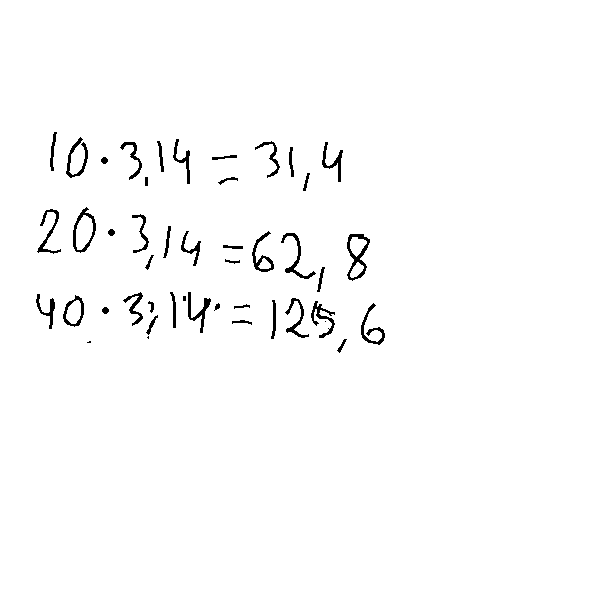 10·3,14=31,4
20·3,14=62,8
40·3,14=125,6